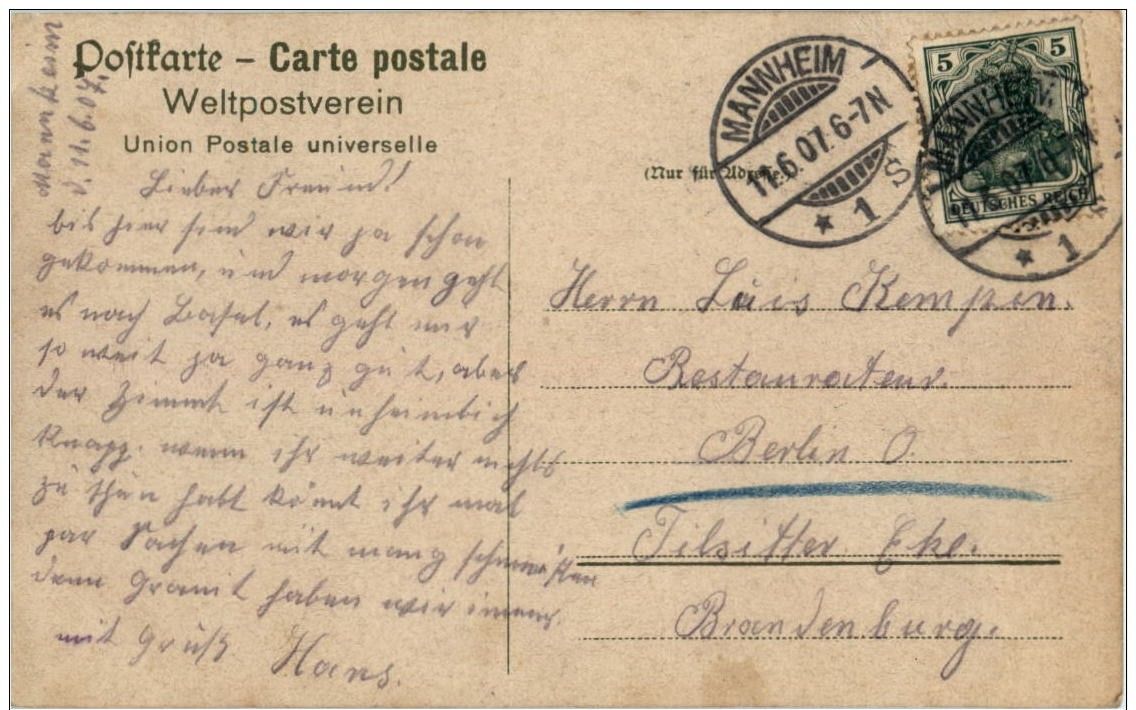 Mannheim
d. 11.6.07.
Postkarte – Carte postale
Weltpostverein
Union Postale universelle
(Nur für Adresse.)
MANNHEIM
11.6.07.6-7N
* 1
S
5 5
DEUTSCHES REICH
MANNHEIM
* 1
Lieber Freund!
bis hier sind wir ja schon
gekommen, und morgen geht
es nach Basel, es geht mir
so weit ja ganz gut, aber
der Zimmt ist unheimlich
Knapp. wenn ihr weiter nichts
zu thun habt könnt ihr mal
par Sachen mit mang schmeißen
denn Gramit haben wir immer.
mit Gruß
Hans.
Herrn Luis Kempen.
Restaurateur.
Berlin O.
Tilsitter Eke.
Brandenburg.